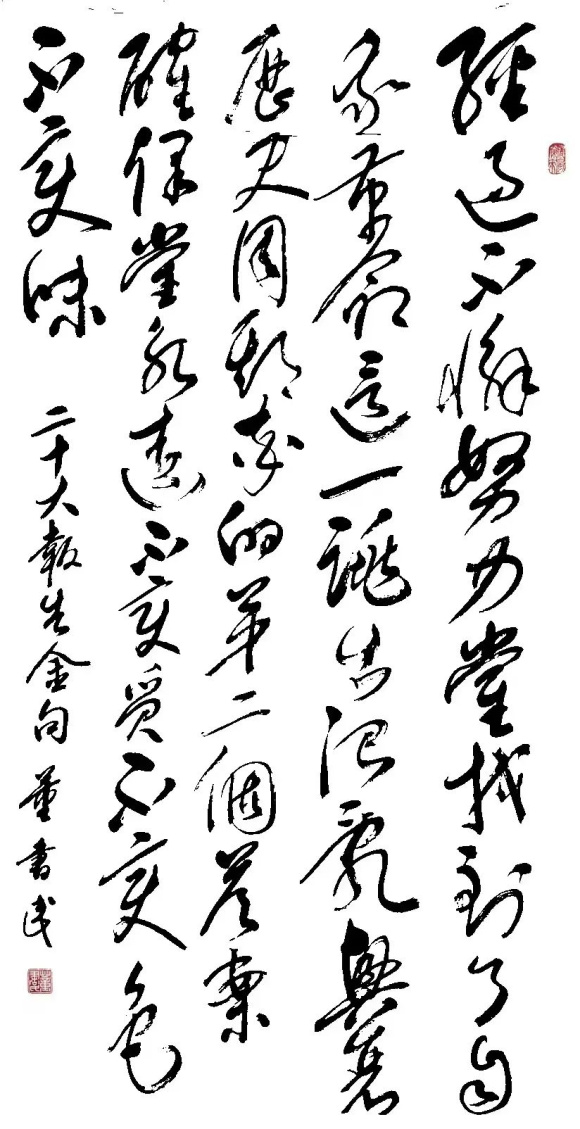 經過不懈努力黨找到了自
我革命這一跳出治亂興衰
歷史周期率的第二個答案
確保黨永遠不變質不變色
不變味
二十大報告金句 董書民